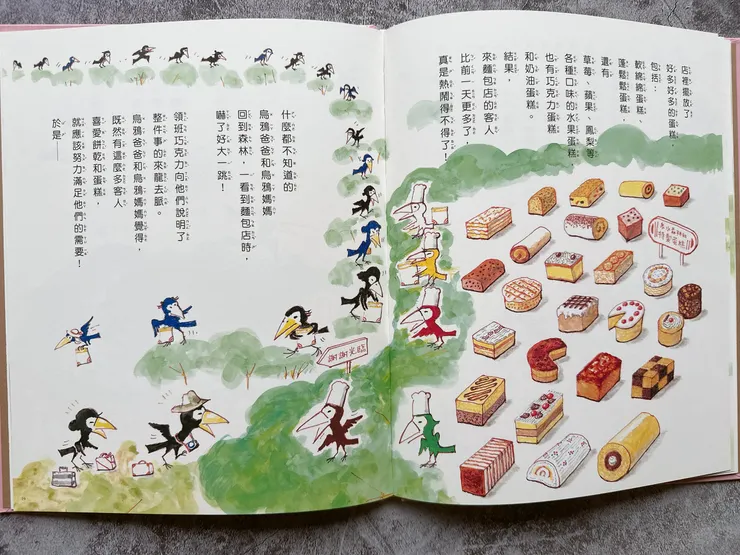 店裡擺放了
好多好多的蛋糕，
包括：
軟綿綿蛋糕、
蓬鬆鬆蛋糕，
還有
草莓、蘋果、鳳梨等
各種口味的水果蛋糕，
也有巧克力蛋糕
和奶油蛋糕。
結果，
來麵包店的客人
比前一天更多了，
真是熱鬧得不得了！
什麼都不知道的
烏鴉爸爸和烏鴉媽媽
回到森林，一看到麵包店時，
嚇了好大一跳！
領班巧克力向他們說明了
整件事的來龍去脈。
烏鴉爸爸和烏鴉媽媽覺得，
既然有這麼多客人
喜愛餅乾和蛋糕，
就應該努力滿足他們的需要！
於是——
謝謝光臨